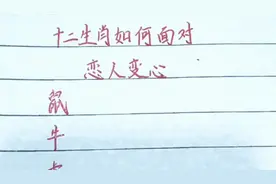 十二生肖如何面对
恋人变心
鼠
牛